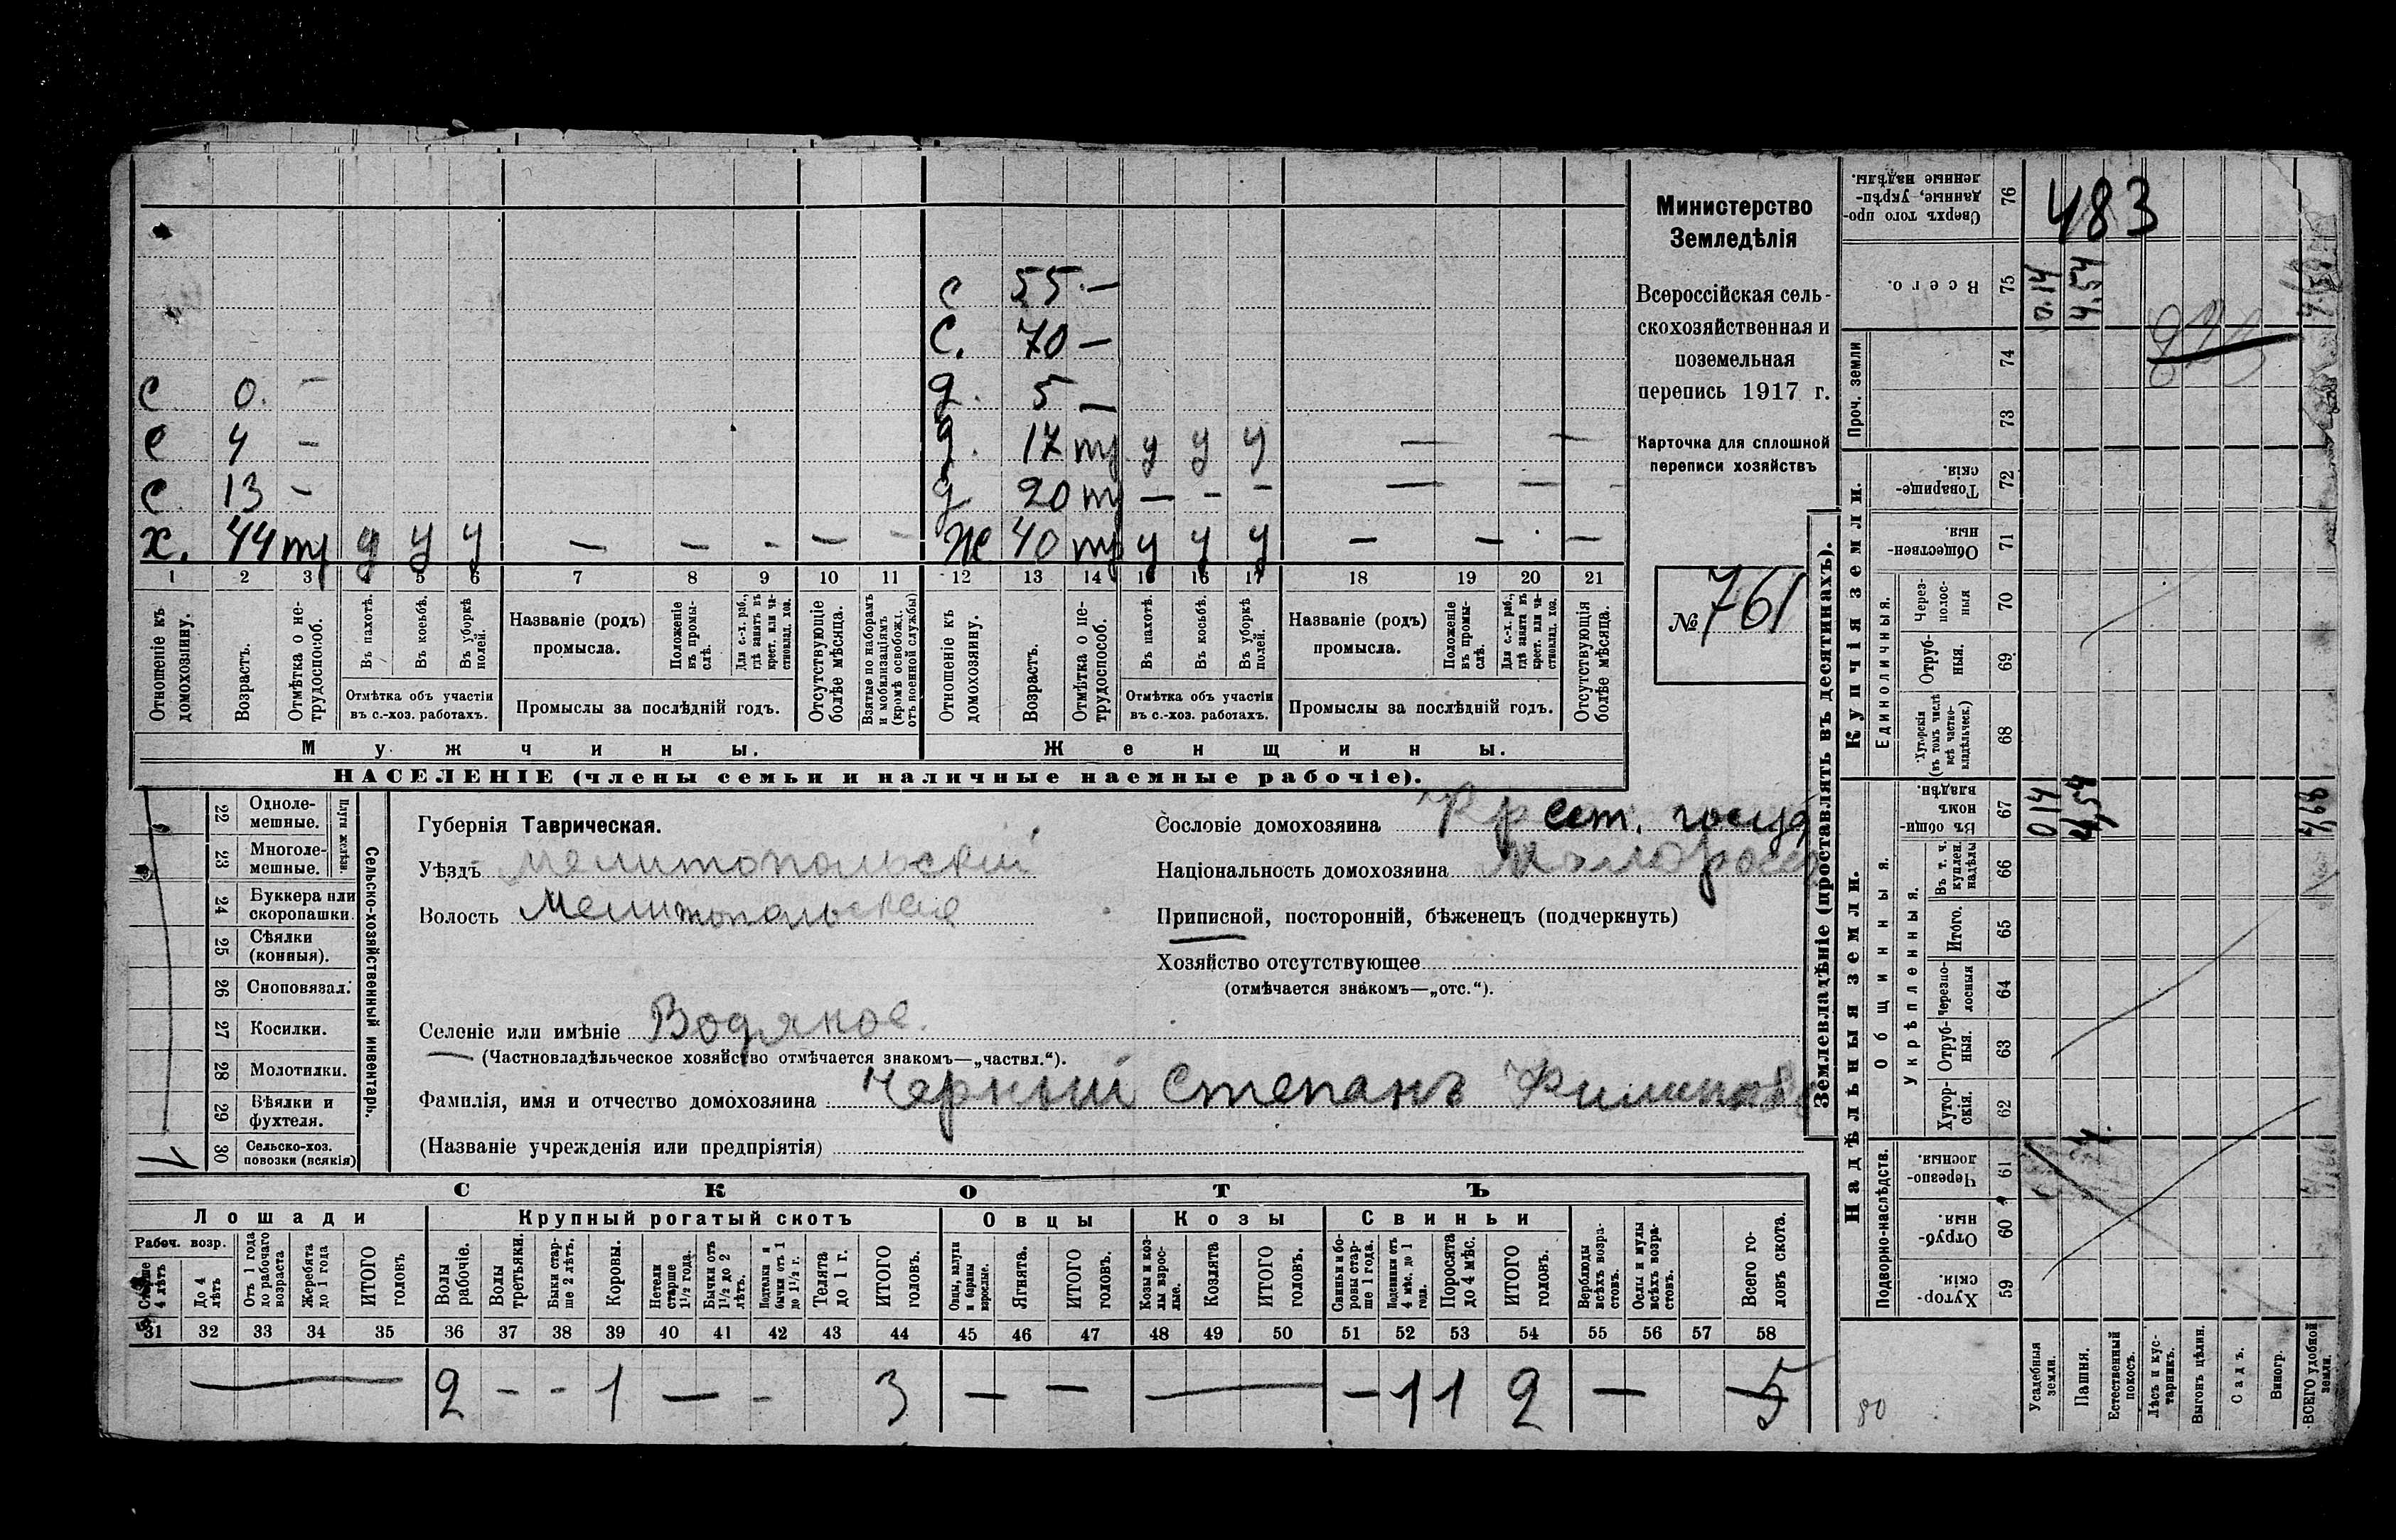 с 55 —
с. 70 —
с 0. — д. 5 —
с 4 — д. 17 тр у у у — —
с. 13 — д 20 тр — - - — —
х. 44 тр у у у — — - — - ж 40 тр у у у — — —
1 2 3 4 5 6 7 8 9 10 11 12 13 14 15 16 17 18 19 20 21
Отношеніе къ домохозяину.
Возрастъ.
Отмѣтка о не-трудоспособ.
Въ пахотѣ.
Въ косьбѣ.
Въ уборкѣ полей.
Отмѣтка объ участіи
въ с.-хоз. работахъ.
Названіе (родъ)
промысла.
Положеніе въ промы-слѣ.
Для с.-х. раб., гдѣ занятъ въ крест. или ча-стновлад. хоз.
Промыслы за послѣдній годъ.
Отсутствующіе болѣе мѣсяца.
Взятые по наборамъ и мобилизаціямъ (кромѣ освобожд. отъ военной службы)
Отношеніе къ домохозяину.
Возрастъ.
Отмѣтка о не-трудоспособ.
Въ пахотѣ.
Въ косьбѣ.
Въ уборкѣ полей.
Отмѣтка объ участіи
въ с.-хоз. работахъ.
Названіе (родъ)
промысла.
Положеніе въ промы-слѣ.
Для с.-х. раб., гдѣ занята въ крест. или ча-стновлад. хоз.
Промыслы за послѣдній годъ.
Отсутствующія болѣе мѣсяца.
Мужчины. Женщины.
НАСЕЛЕНІЕ (члены семьи и наличные наемные рабочіе).
Министерство
Земледѣлія
Всероссійская сель-
скохозяйственная и
поземельная
перепись 1917 г.
Карточка для сплошной
переписи хозяйствъ
№ 761
22 Одноле-мешные.
23 Многоле-мешные.
Плуги желѣзн.
24 Буккера или скоропашки.
25 Сѣялки (конныя).
26 Сноповязал.
27 Косилки.
28 Молотилки.
29 Вѣялки и фухтеля.
30 Сельско-хоз. повозки (всякія)
Сельско-хозяйственный инвентарь.
Губернія Таврическая.
Уѣздъ Мелитопольскій
Волость Мелитопольская
Сословіе домохозяина Крест. госуд
Національность домохозяина Малоросс
Приписной, посторонній, бѣженецъ (подчеркнуть)
Хозяйство отсутствующее
(отмѣчается знакомъ—„отс.“).
Селеніе или имѣніе Водяное.
(Частновладѣльческое хозяйство отмѣчается знакомъ—„частвл.“).
Фамилія, имя и отчество домохозяина Черный Степанъ Филипов
(Названіе учрежденія или предпріятія)
СКОТЪ
Лошади Крупный рогатый скотъ Овцы Козы Свиньи
Рабоч. возр.
Старше 4 лѣтъ
До 4 лѣтъ
Отъ 1 года до рабочаго возраста
Жеребята до 1 года
ИТОГО головъ
Волы рабочіе.
Волы третьяки.
Быки стар-ше 2 лѣтъ.
Коровы.
Нетели старше 1½ года.
Бычки отъ 1½ до 2 лѣтъ.
Подтелки и бычки отъ 1 до 1½ г.
Телята до 1 г.
ИТОГО головъ.
Овцы, валухи и бараны взрослые.
Ягнята.
ИТОГО головъ.
Козы и коз-лы взрос-лые.
Козлята
ИТОГО головъ.
Свиньи и бо-ровы стар-ше 1 года.
Подсвинки отъ 4 мѣс. до 1 года.
Поросята до 4 мѣс.
ИТОГО головъ.
Верблюды всѣхъ возра-стовъ.
Ослы и мулы всѣхъ возра-стовъ.
Всего го-ловъ скота.
31 32 33 34 35 36 37 38 39 40 41 42 43 44 45 46 47 48 49 50 51 52 53 54 55 56 57 58
— 2 - - 1 — - 3 — — — — 1 1 2 — 5
Землевладѣніе (проставлять въ десятинахъ).
Надѣльныя земли. Купчія земли.
Проч. земли
Подворно-наслѣдств.
Общинныя.
Укрѣпленныя.
Единоличныя.
Сверхъ того про-данные, укрѣп-ленные надѣлы. 76 483
Всего. 75 0.14 4.54
74
73
Товарище-скія. 72
Обществен-ныя. 71
Через-полос-ныя 70
Отруб-ныя. 69
Хуторскія (въ томъ числѣ всѣ частно-владѣльческ.) 68
Въ общин-номъ владѣн. 67 0 14 4,54
Въ т. ч. куплен. надѣлы 66
Итого. 65
Черезпо-лосныя 64
Отруб-ныя. 63
Хутор-скія. 62
Черезпо-лосныя. 61
Отруб-ныя. 60
Хутор-скія. 59
80
Усадебныя земли.
Пашня.
Естественный покосъ.
Лѣсъ и кус-тарникъ.
Выгонъ цѣлин.
Садъ.
Виногр.
ВСЕГО удобной земли.